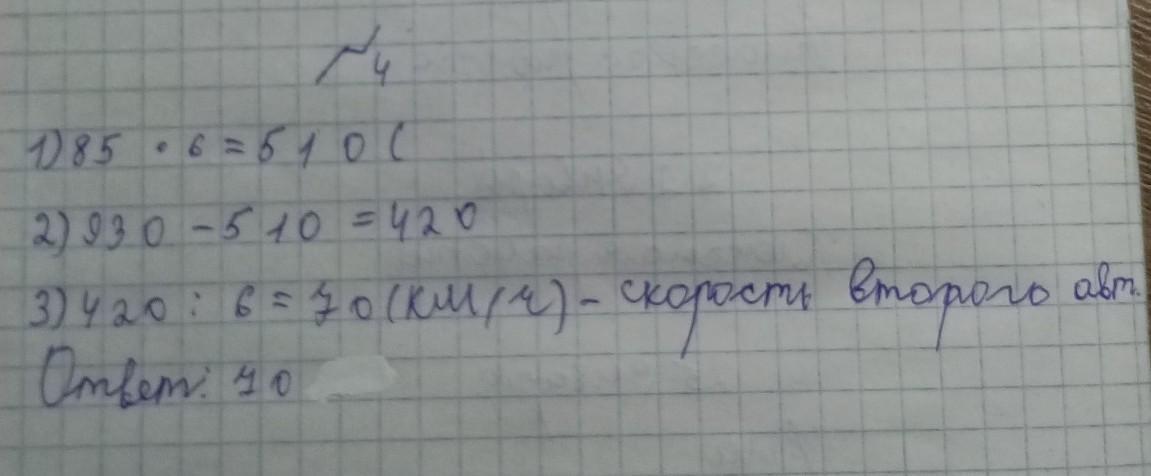 №4
1) 85 · 6 = 510 (
2) 930 - 510 = 420
3) 420 : 6 = 70 (км/ч) - скорость второго авт.
Ответ: 70